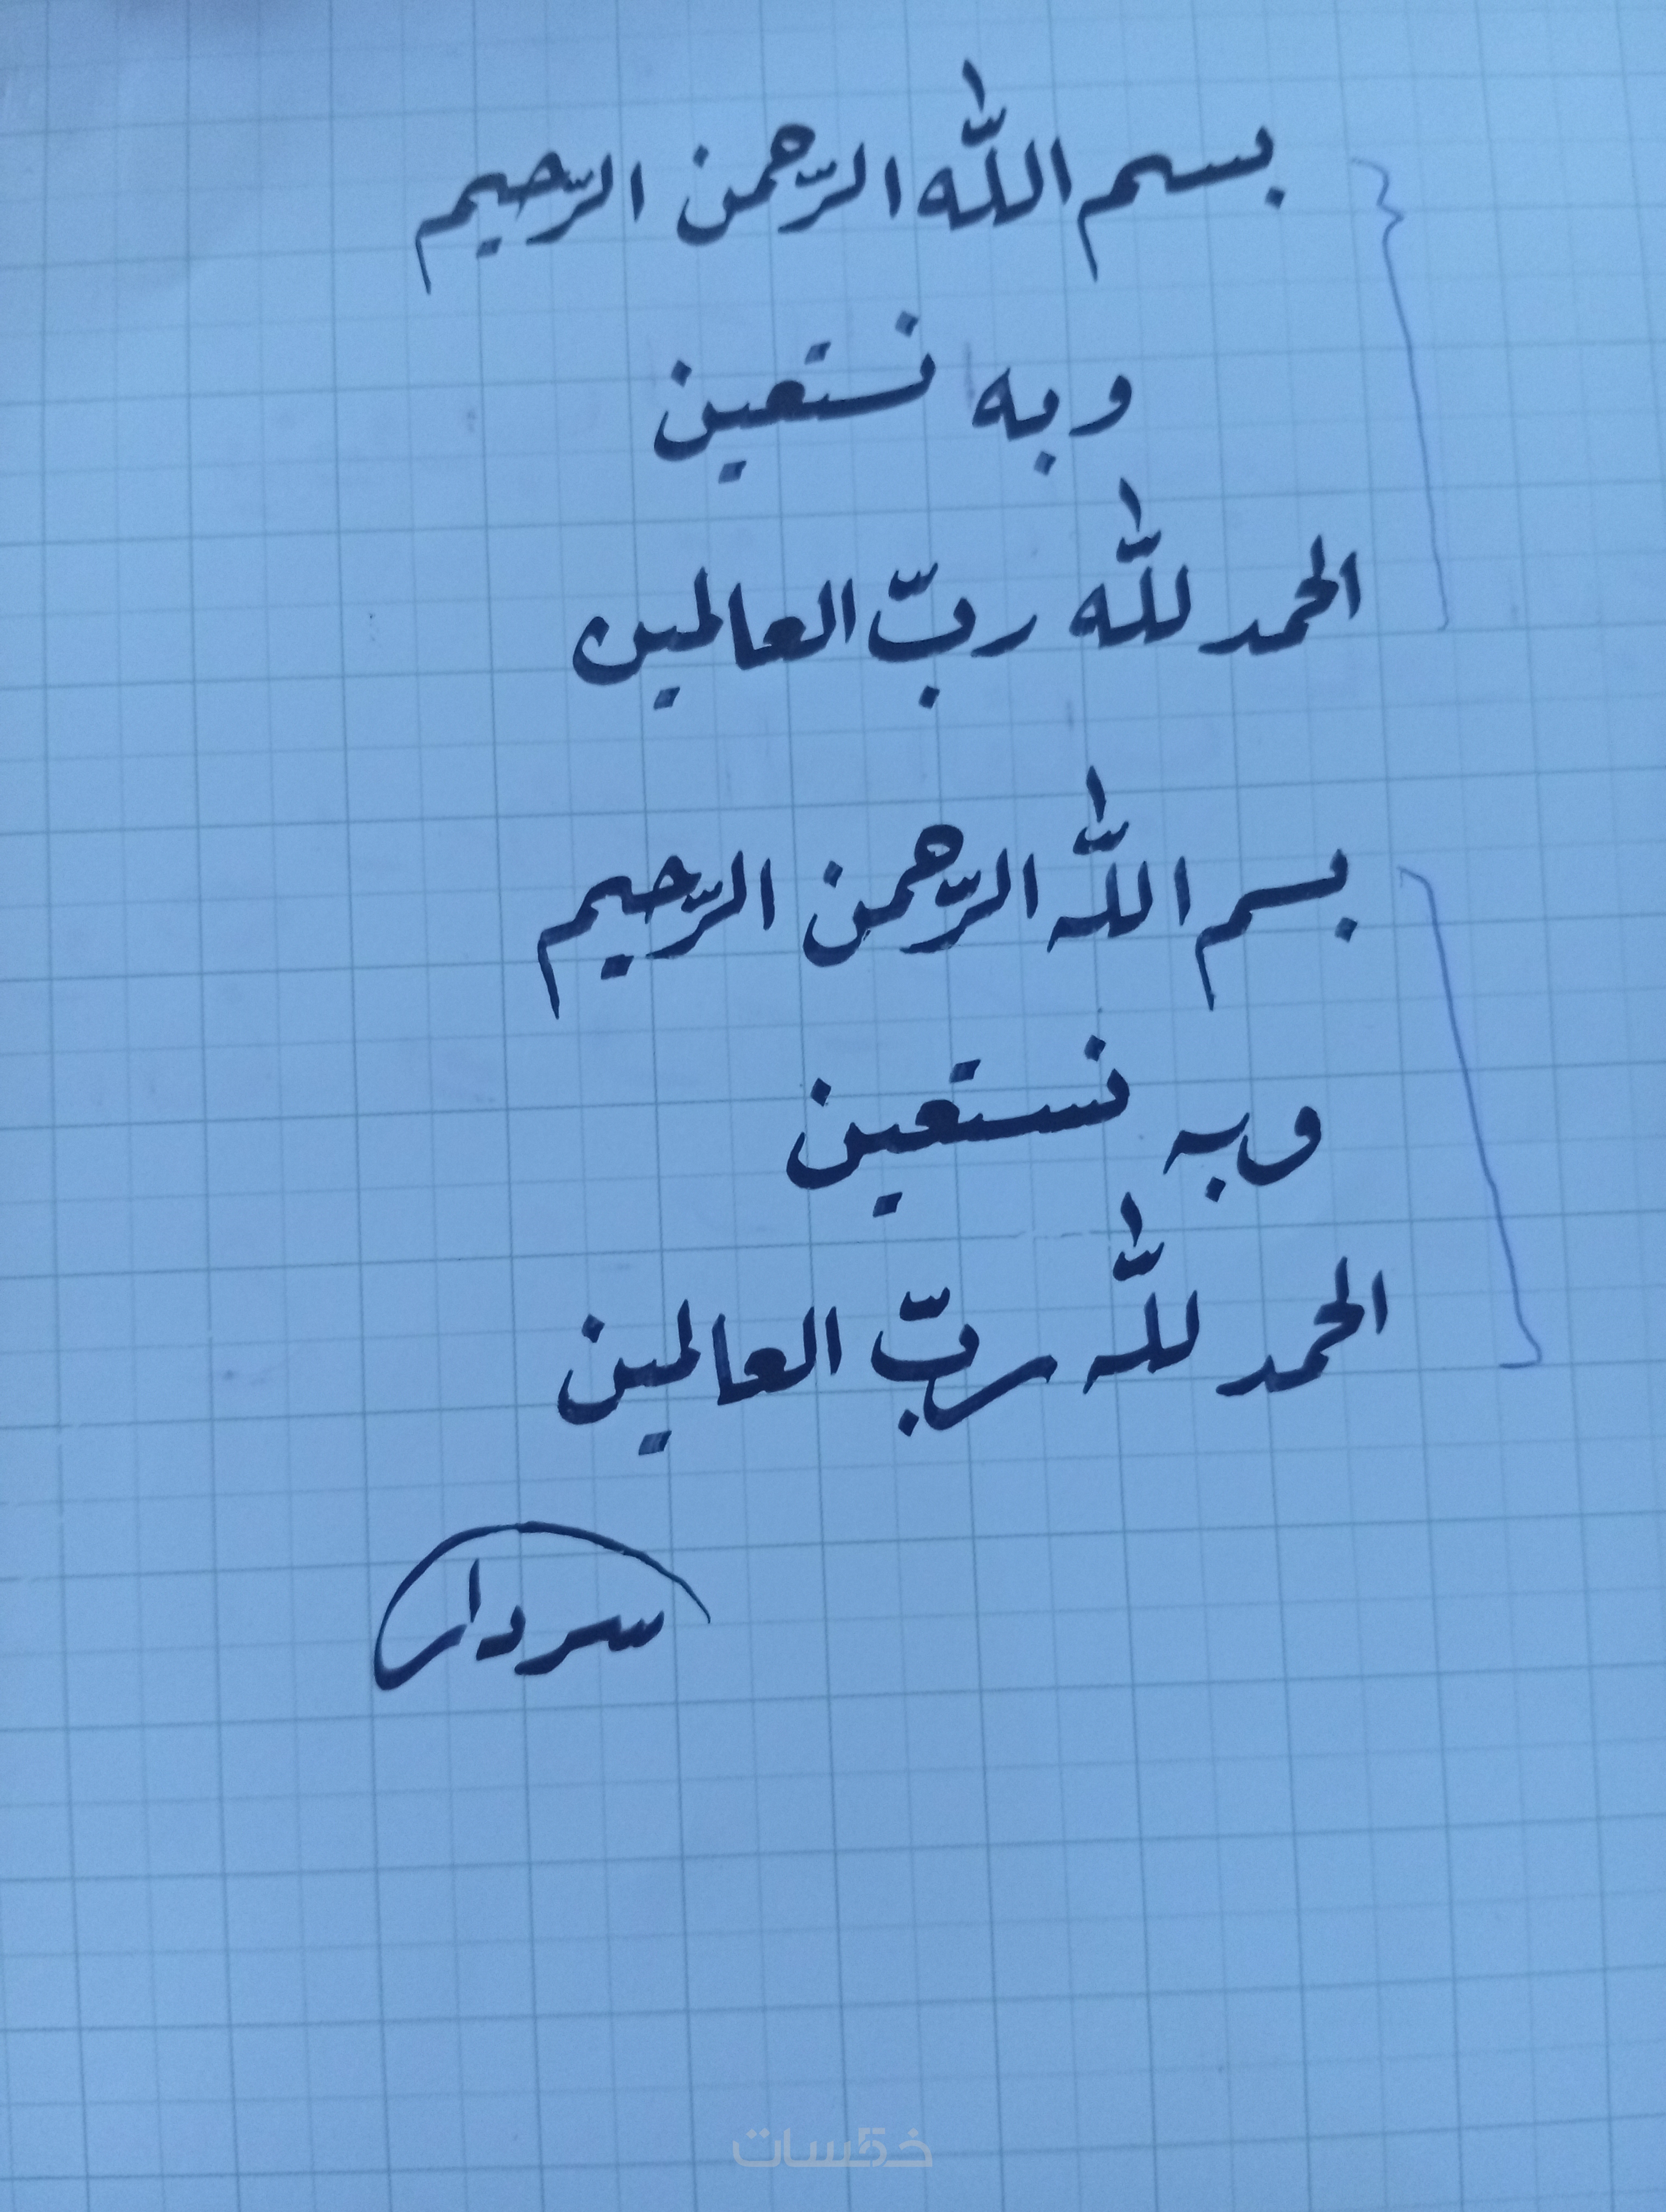 بسم اللّٰه الرّحمن الرّحيم
وبه نستعين
الحمد للّٰه ربّ العالمين
بسم اللّٰه الرّحمن الرّحيم
وبه نستعين
الحمد للّٰه ربّ العالمين
سردار
خمسات